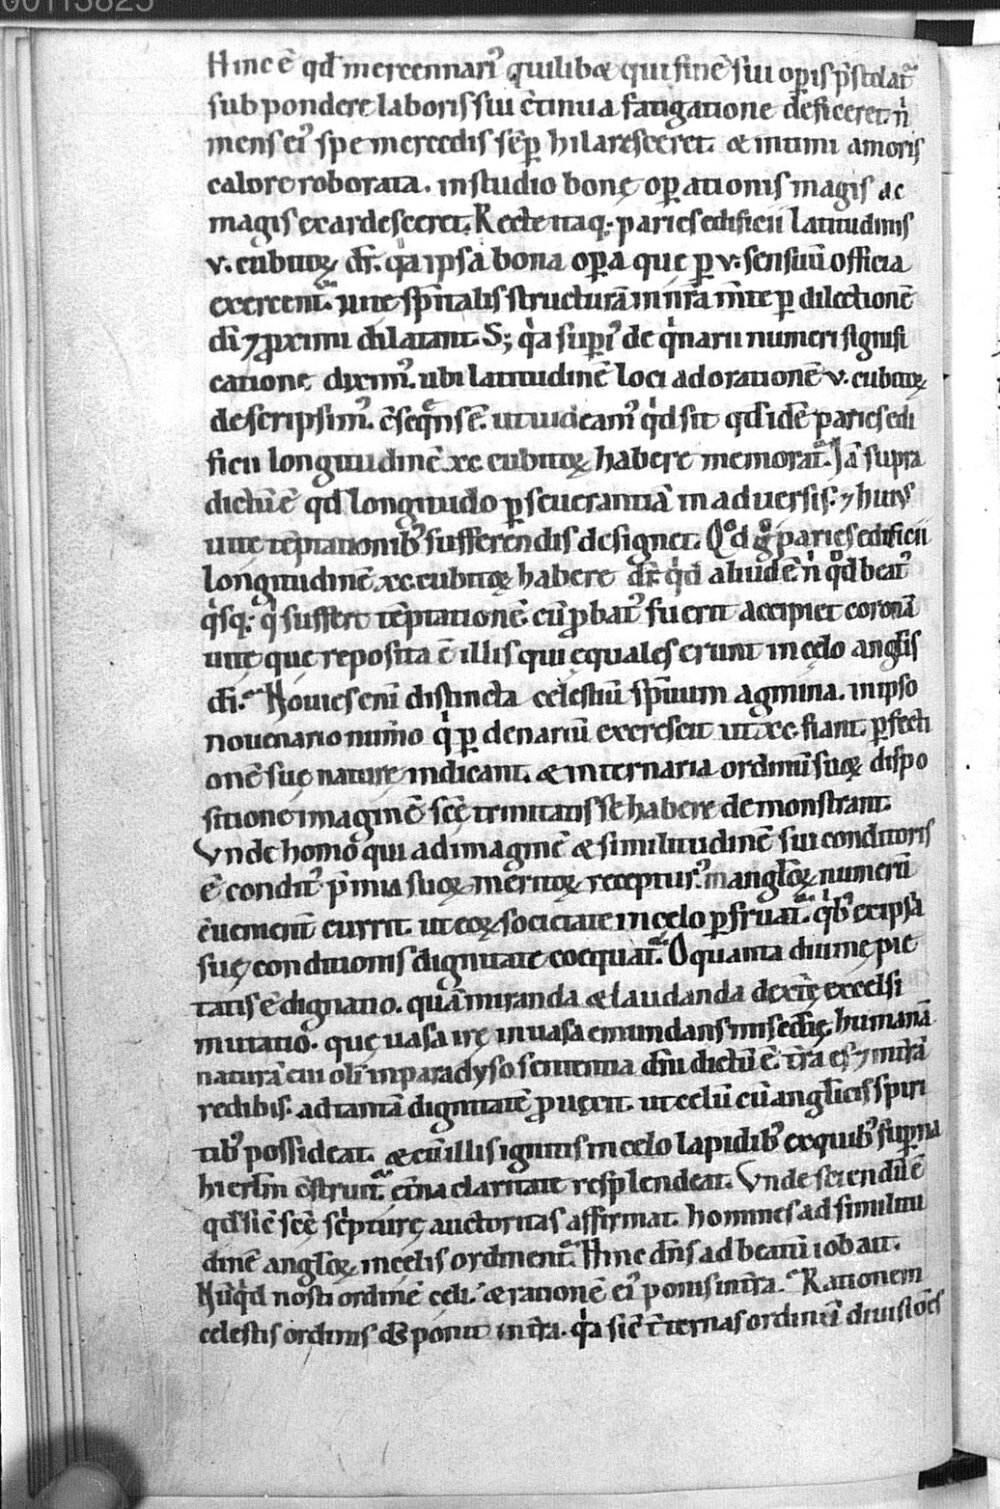 00113825
Hinc ē qđ mercennariꝰ quilibꝫ qui finē sui opis p̄stolat᷑
sub pondere laboris sui ꝯtinua fatigatione deficeret. nͥ
mens eiꝰ spe mercedis sēp hilaresceret. & intimi amoris
calore roborata. in studio bonę opationis magis ac
magis exardesceret. Recte itaq; paries edificii latitudinis
v. cubitoꝝ dr̄. qͥa ipsa bona opa que p v. sensuū officia
exercent᷑. iure spīritalis structurā in nr̄a m̄te p dilectionē
dī ⁊ ꝓximi dilatant. S; qͥa supiꝰ de qͥnarii numeri signifi
catione diximꝰ. ubi latitudinē loci ad orationē v. cubitoꝝ
descripsimꝰ. ꝯseqͣns ē. ut uideamꝰ qͥd sit qđ idē paries edi
ficii longitudinē xc cubitoꝝ habere memorat᷑. Iā supra
dictū ē qđ longitudo pseuerantiā in aduersis. ⁊ huiꝰ
uitę tēptationibꝰ sufferendis designet. Qͦd gͦ paries edificii
longitudinē xc cubitoꝝ habere dr̄. qͥd aliud ē nͥ qͦd beatꝰ
qͥsq; qͥ suffert tēptationē. cū ꝓbatꝰ fuerit accipiet coronā
uitę que reposita ē illis qui equales erunt in celo anglis
dī. Nouies eni distincta celestiū spirituum agmina. in ipso
nouenario num̄o qͥ p denariū excrescit ut xc. fiant. pfecti
onē suę naturę indicant. & in ternaria ordinū suoꝝ dispo
sitione imaginē scē trinitatis se habere demonstrant.
Vnde homo qui ad imaginē & similitudinē sui conditoris
ē conditꝰ p̄mia suoꝝ meritoꝝ recepturꝰ. in angloꝝ numerū
ꝯuenient᷑ currit. ut eoꝝ societate in celo pfruat᷑. qͥbꝰ ex ipsa
suę conditionis dignitate coequat᷑. O quanta diuinę pie
tatis ē dignatio. quā miranda & laudanda dexterę excelsi
mutatio. quę uasa irę in uasa emundans misedię. humanā
naturā cui olī in paradyso sententia dn̄i dictū ē. tr̄a es ⁊ in tr̄ā
redibis. ad tantā dignitatē ꝓuexit. ut celū cū anglicis spiri
tibꝰ possideat. & cū illis ignitis in celo lapidibꝰ ex quibꝰ supna
hierlm ꝯstruit᷑. etn̄a claritate resplendeat. Vnde sciendū ē
qđ sic scē scͥpturę auctoritas affirmat. homines ad similitu
dinē angloꝝ in celis ordinent᷑. Hinc dn̄s ad beatū iob ait.
Nūqͥd nosti ordinē celi. & rationē eiꝰ ponis in tr̄a. Rationem
celestis ordinis đs ponit in tr̄a. qͥa sic ī ternas ordinū diuisiōes